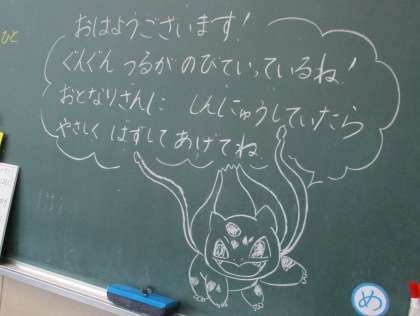 おはようございます!
ぐんぐん つるが のびていっているね!
おとなりさんに しんにゅうしていたら
やさしく はずして あげてね
ひと
め